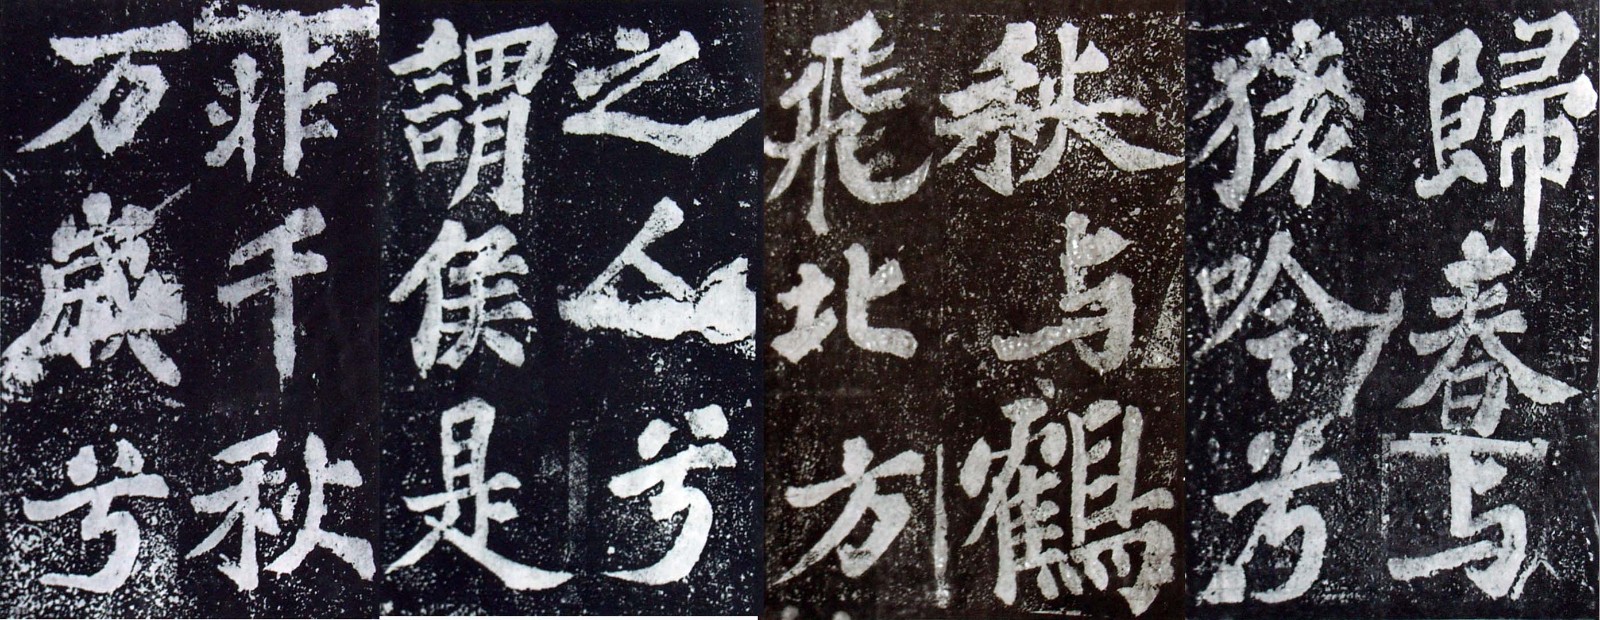 歸春与
猿吟兮
秋与鶴
飛北方
之人兮
謂侯是
非千秋
万歲兮